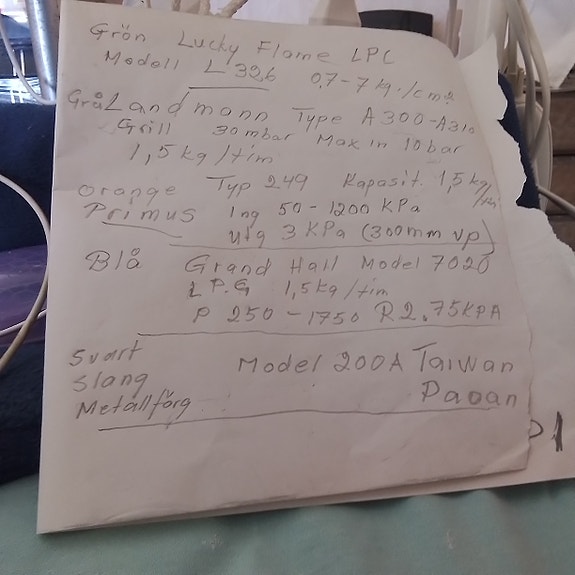 Grön Lucky Flame LPC
Modell L 326 0,7-7 kg./cm2
Grå Landmann Type A300-A310
Grill 30mbar Max in 10bar
1,5 kg/tim
orange Typ 249 Kapasit. 1,5 kg/tim
Primus Ing 50-1200 KPa
utg 3 KPa (300mm vp)
Blå Grand Hall Model 7020
L P.G 1,5kg/tim
P 250-1750 R2.75KPA
Svart
Slang Model 200A Taiwan
Metallfärg Paoan